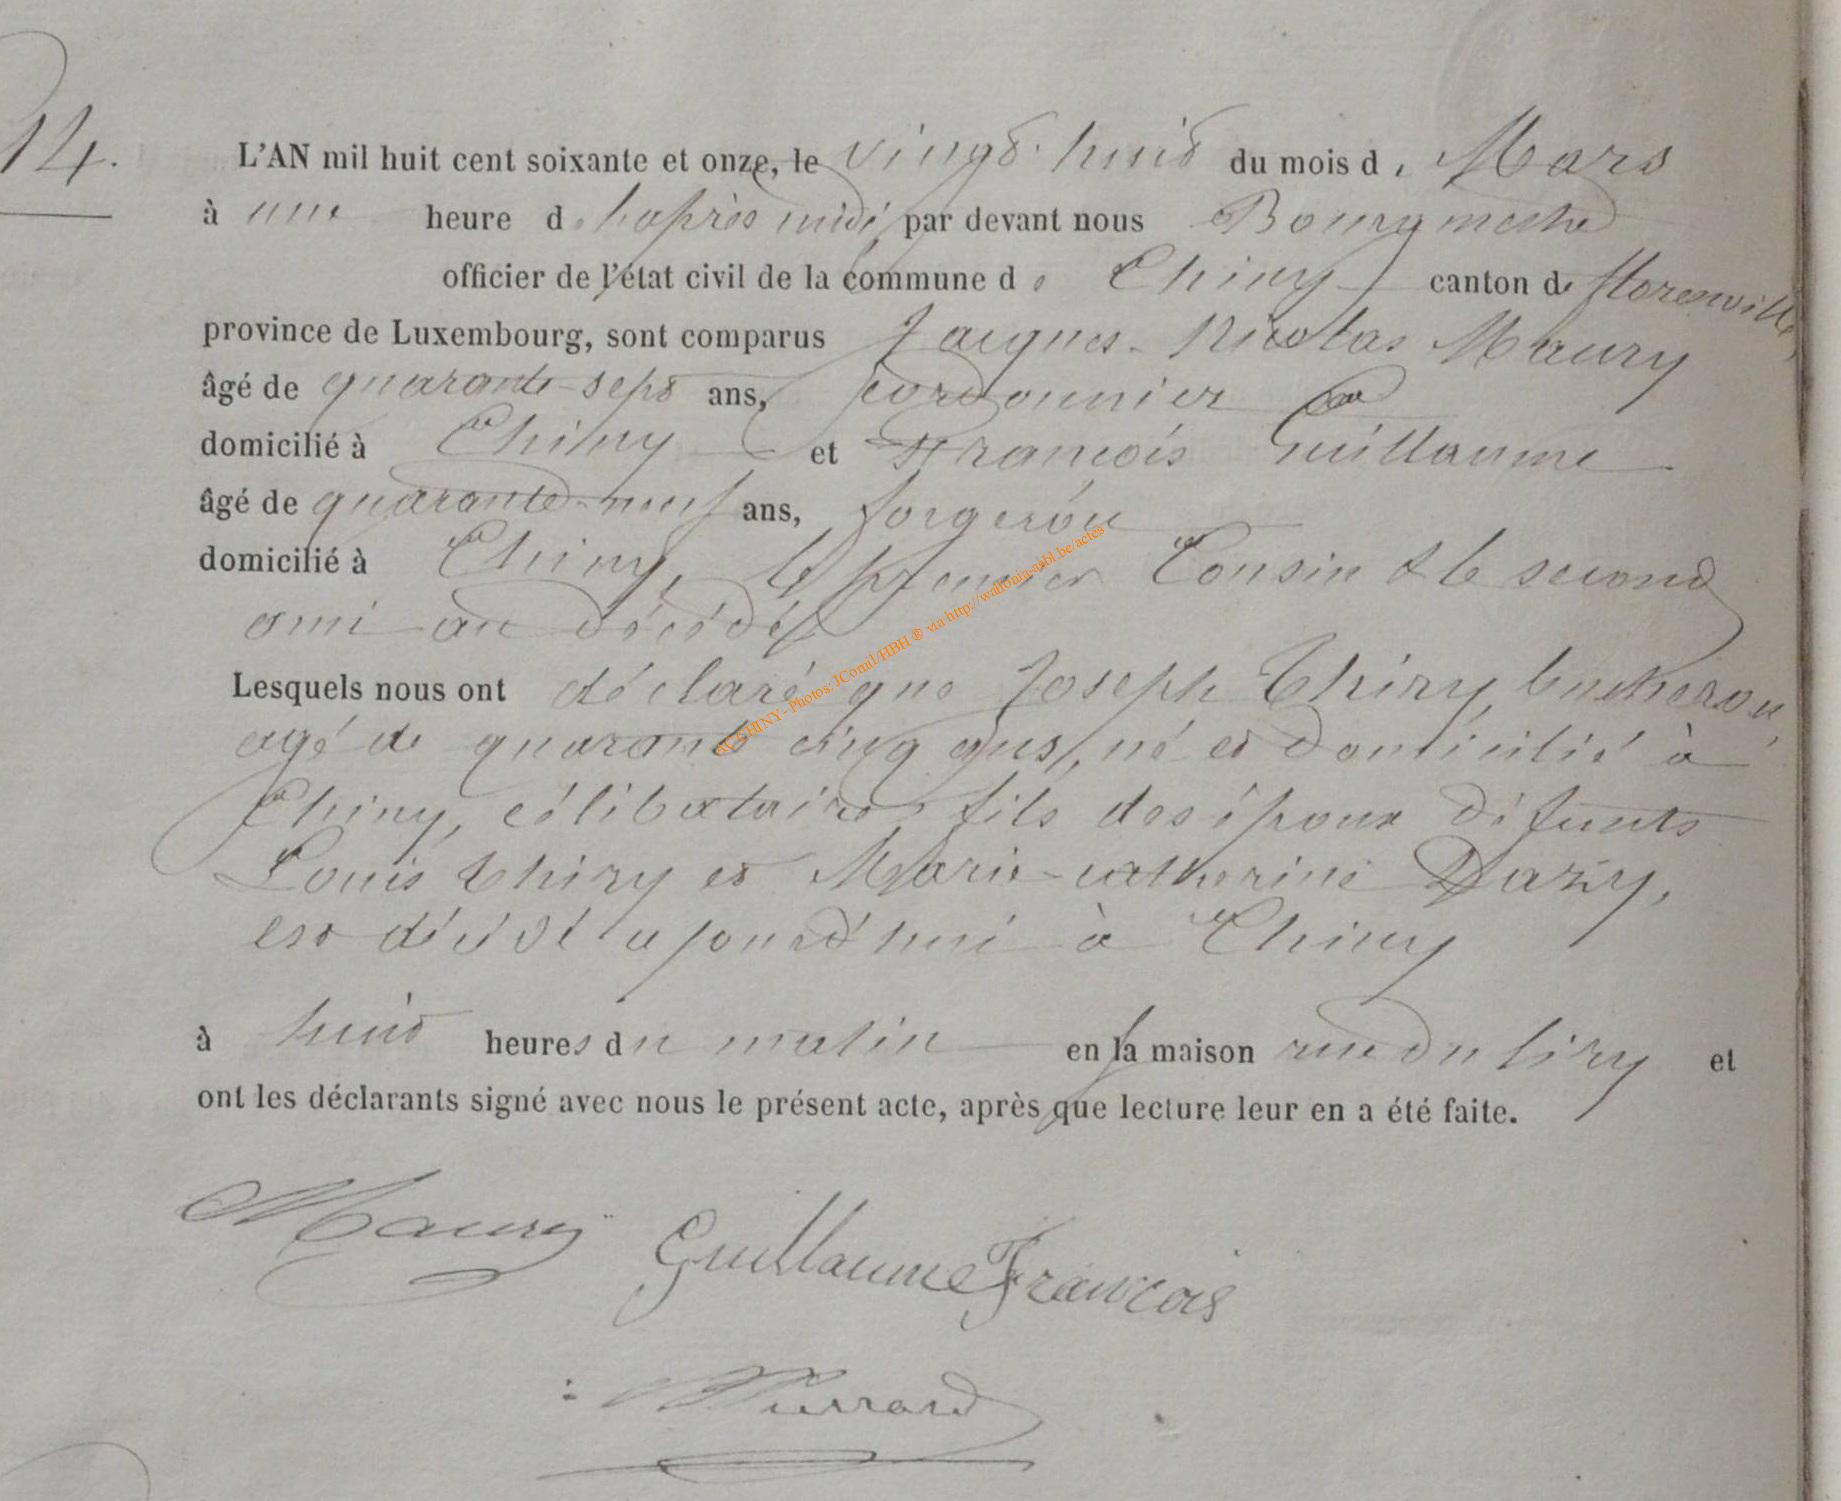 14.
L'AN mil huit cent soixante et onze, le vingt-huit du mois de Mars
à une heure de l'après midi, par devant nous Bourgmestre
officier de l'état civil de la commune de Chiny canton de florenville,
province de Luxembourg, sont comparus Jacques-Nicolas Maury
âgé de quarante-sept ans, cordonnier
domicilié à Chiny et François Guillaume
âgé de quarante-neuf ans, forgeron
domicilié à Chiny, le premier Cousin & le second
ami au décédé,
Lesquels nous ont déclaré que Joseph Thiry, bucheron,
agé de quarante cinq ans, né et domicilié à
Chiny, célibataire, fils des époux défunts
Louis Thiry et Marie-catherine Dazy,
est décédé ajourd'hui à Chiny
à huit heures du matin en sa maison rue du liry et
ont les déclarants signé avec nous le présent acte, après que lecture leur en a été faite.
Maury
Guillaume François
AC CHINY - Photos: JComil/HBH ® via http://wallonia-asbl.be/actes